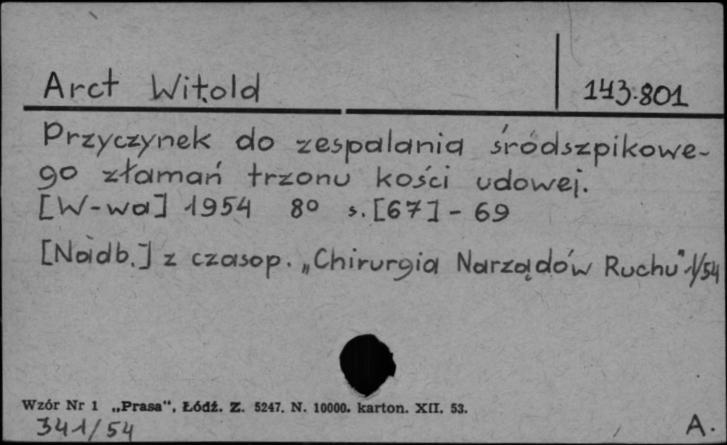 Arct Witold
143.801
Przyczynek do zespalania śródszpikowe-
go złamań trzonu kości udowej.
[W-wa] 1954 8° s.[67] - 69
[Nadb.] z czasop. „Chirurgia Narządów Ruchu" 1/54
Wzór Nr 1 „Prasa“, Łódź. Z. 5247. N. 10000. karton. XII. 53.
341/54
A.